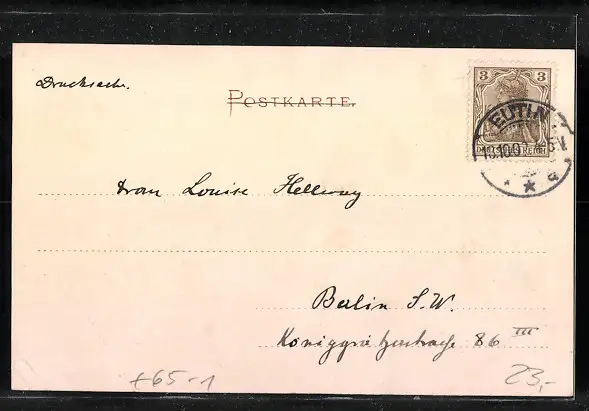 Drucksache.
POSTKARTE.
3 3
DEUTSCHES REICH
EUTIN
13.10.0
Frau Louise Hellweg
Berlin S.W.
Königgrätzerstrasse 86 III
+65-1
23,-